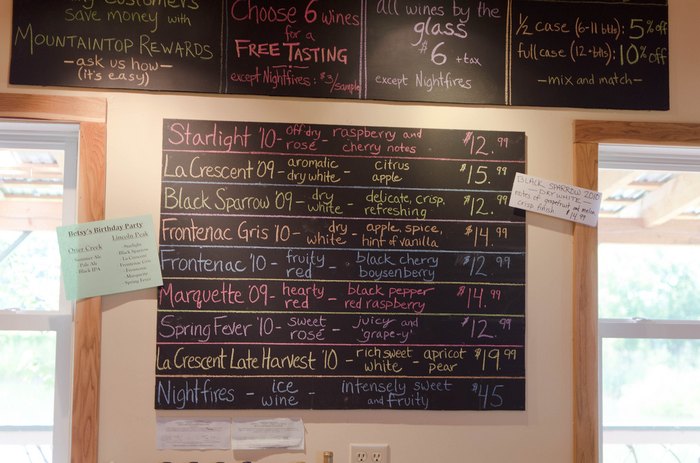 Customers
Save money with
MOUNTAINTOP REWARDS
-ask us how-
(it's easy)
Choose 6 wines
for a
FREE TASTING
except Nightfires: $3/sample
all wines by the
glass
$6 +tax
except Nightfires
½ case (6-11 btls): 5% off
full case (12+ btls): 10% off
-mix and match-
Starlight '10 - off-dry rosé - raspberry and cherry notes $12.99
La Crescent '09 - aromatic dry white - citrus apple $15.99
Black Sparrow '09 - dry white - delicate, crisp, refreshing $12.99
Frontenac Gris '10 - dry white - apple, spice, hint of vanilla $14.99
Frontenac '10 - fruity red - black cherry boysenberry $12.99
Marquette '09 - hearty red - black pepper red raspberry $14.99
Spring Fever '10 - sweet rosé - juicy and "grape-y" $12.99
La Crescent Late Harvest '10 - rich sweet white - apricot pear $19.99
Nightfires - ice wine - intensely sweet and fruity $45
BLACK SPARROW 2010
DRY WHITE
notes of grapefruit and melon
crisp finish $14.99
Betsy's Birthday Party
Otter Creek
Summer Ale
Pale Ale
Black IPA
Lincoln Peak
Starlight
Black Sparrow
La Crescent
Frontenac Gris
Frontenac
Marquette
Spring Fever